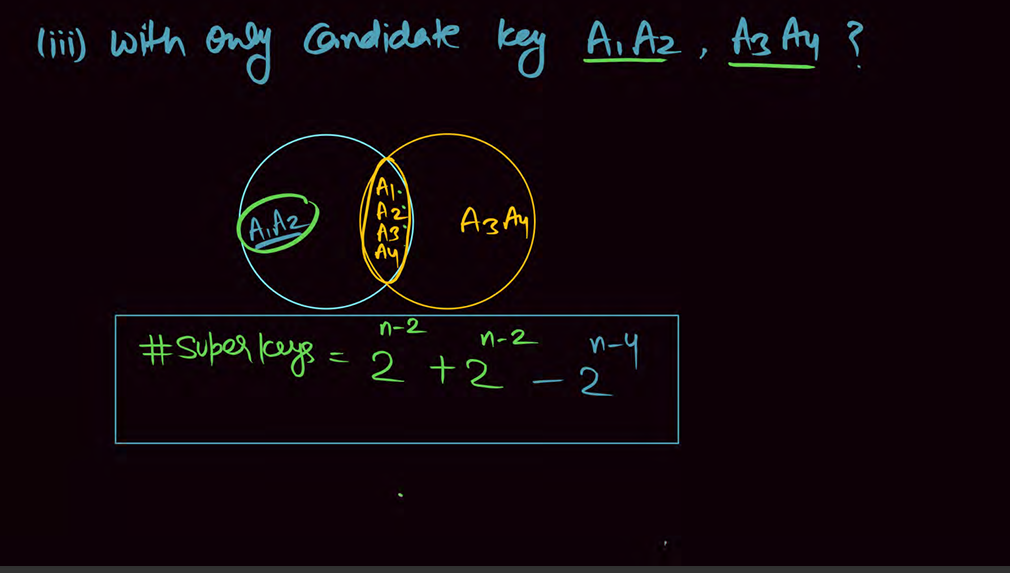 (iii) with only Candidate key A₁A₂, A₃A₄?
A₁A₂
A₁
A₂
A₃
A₄
A₃A₄
#Superkeys = 2ⁿ⁻² + 2ⁿ⁻² - 2ⁿ⁻⁴